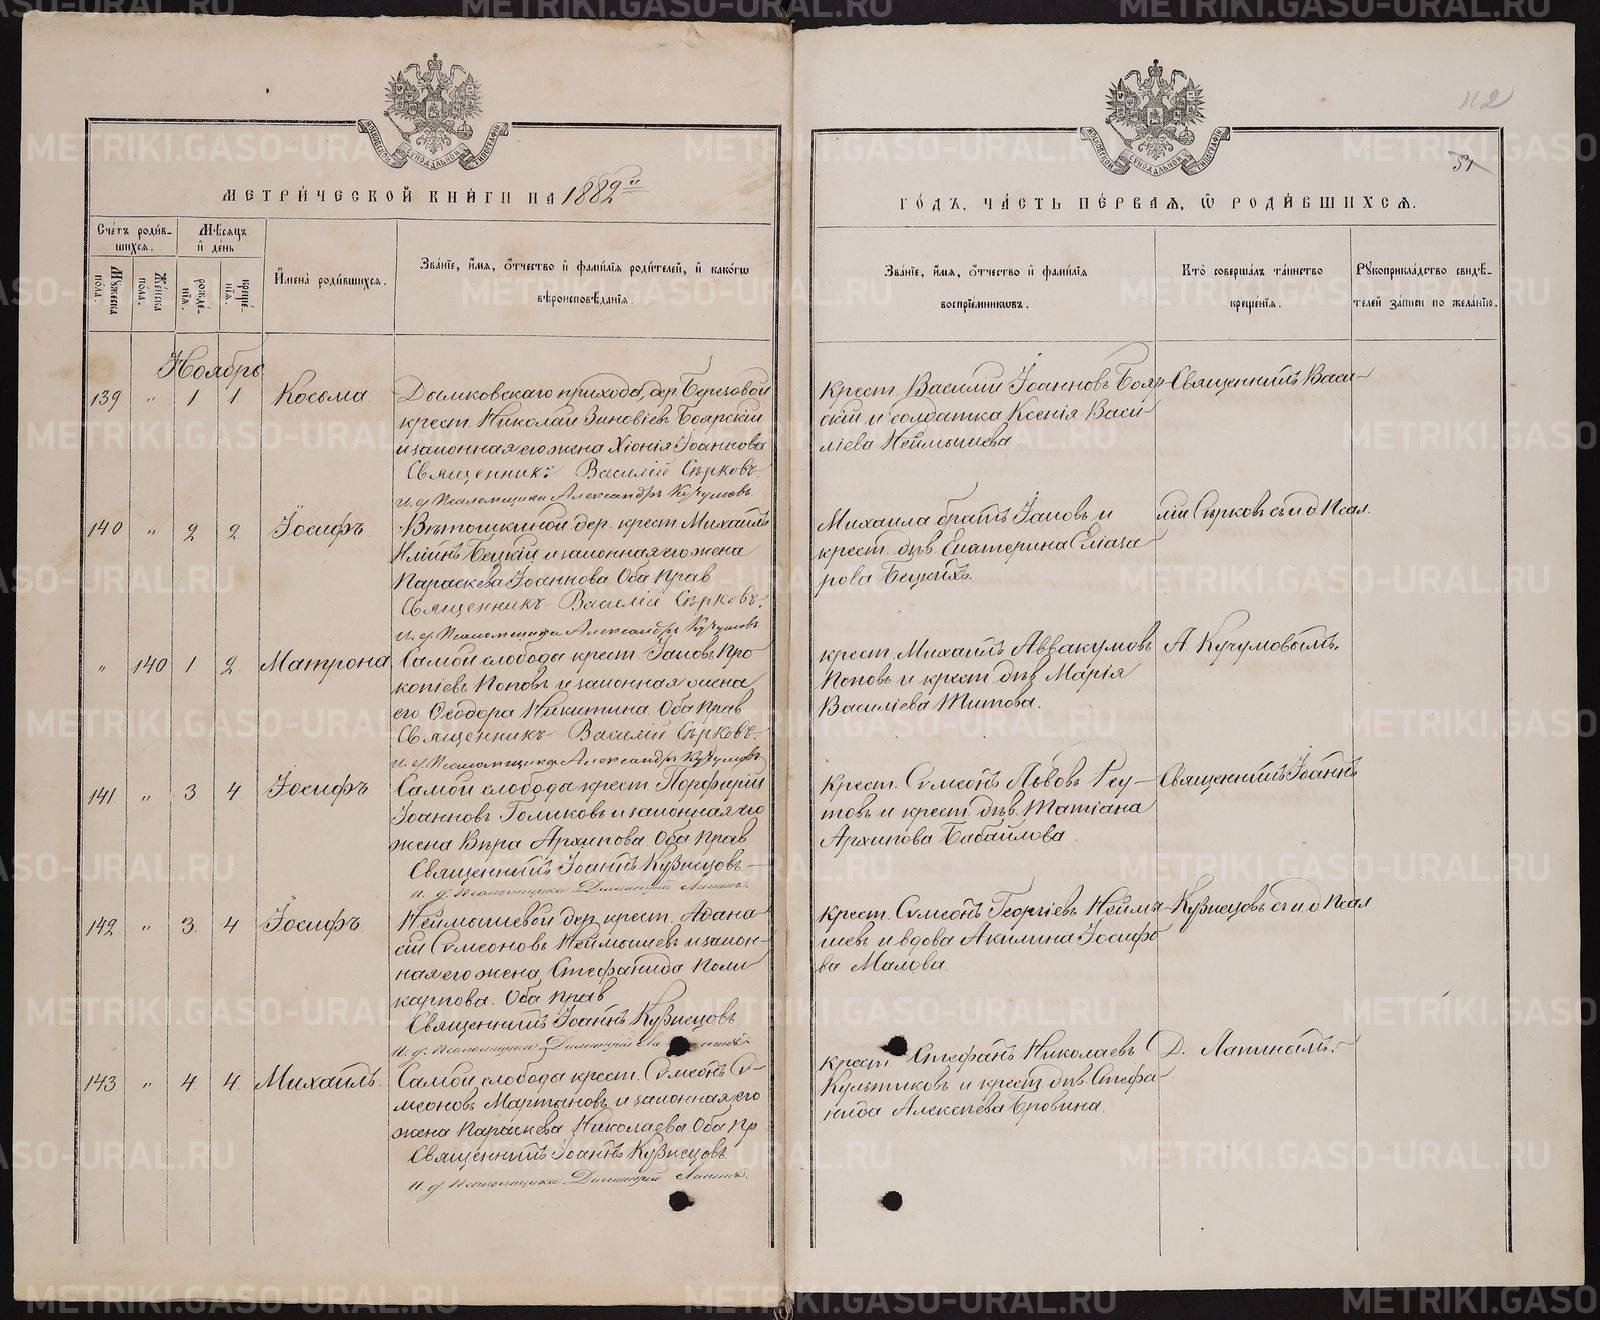 112
51
МОСКОВСКОЙ СѴНОДАЛЬНОЙ ТИПОГРАФІИ
МОСКОВСКОЙ СѴНОДАЛЬНОЙ ТИПОГРАФІИ
МЕТРИ́ЧЕСКОЙ КНИ́ГИ НА 1882й
ГО́ДЪ, ЧА́СТЬ ПЕ́РВАЯ, Ѽ РОДИ́ВШИХСЯ.
Сче́тъ роди́вшихся.
Мѣ́сяцъ и҆ де́нь
Мꙋжеска пола.
Же́нска пола.
рожде́нїѧ.
креще́нїѧ.
И҆мена̀ роди́вшихся.
Зва́нїе, и҆́мѧ, ѻ҆́тчество и҆ фами́лїѧ роди́телей, и҆ како́гѡ
вѣроисповѣ́данїѧ.
Зва́нїе, и҆́мѧ, ѻ҆́тчество и҆ фами́лїѧ
воспрїе́мниковъ.
Кто̀ соверша́лъ та́инство
креще́нїѧ.
Рꙋкоприкла́дство свидѣ́-
телей за́писи по жела́нїю.
Ноябрь
139 " 1 1 Косьма.
Дымковскаго прихода, дер Березовой
крест. Николай Зиновіевъ Боярскій
и законная его жена Хіонія Іоаннова
Священникъ Василій Сѣрковъ.
И. д. Псаломщика Александръ Кучумовъ
Крест. Василій Іоанновъ Бояр-
скій и солдатка Ксенія Васи-
ліева Неймышева
Священникъ Васи-
140 " 2 2 Іосифъ
Вѣтошкиной дер. крест. Михаилъ
Бецкій и законная его жена
Параскева Іоаннова Оба прав
Священникъ Василій Сѣрковъ.
И. д. Псаломщика Александръ Кучумовъ
Михаила братъ Іаковъ и
крест. дѣв. Екатерина Елиаза-
рова Бецкихъ.
лій Сѣрковъ съ и д Псал.
" 140 1 2 Матрона
Самой слободы крест. Іаковъ Про-
копіевъ Поповъ и законная жена
его Ѳеодора Никитина. Оба прав
Священникъ Василій Сѣрковъ.
И. д. Псаломщика Александръ Кучумовъ
крест. Михаилъ Аввакумовъ
Поповъ и крест. дѣв. Марія
Василіева Титова.
А. Кучумовымъ.
141 " 3 4 Іосифъ
Самой слободы крест. Порфирій
Іоанновъ Голиковъ и законная его
жена Вѣра Архипова. Оба прав
Священникъ Іоаннъ Кузнецовъ
И. д. Псаломщика Димитрій Лапинъ.
Крест. Сѵмеонъ Львовъ Реу-
товъ и крест. дѣв. Татіана
Архипова Бабайлова.
Священникъ Іоаннъ
142 " 3 4 Іосифъ
Неймышевой дер. крест. Аѳана-
сій Сѵмеоновъ Неймышевъ и закон-
ная его жена Стефанида Поли-
карпова. Оба прав
Священникъ Іоаннъ Кузнецовъ
И. д. Псаломщика Димитрій
Крест. Сѵмеонъ Георгіевъ Неймы-
шевъ и вдова Акилина Іосифо-
ва Малова.
Кузнецовъ съ и. д Псал
143 " 4 4 Михаилъ.
Самой слободы крест. Сѵмеонъ Сѵ-
меоновъ Мартьяновъ и законная его
жена Параскева Николаева. Оба пр
Священникъ Іоаннъ Кузнецовъ
И. д. Псаломщика Димитрій Лапинъ.
крест. Стефанъ Николаевъ
Культиковъ и крест. дѣв. Стефа-
нида Алексѣева Бровина.
Д. Лапинымъ.
METRIKI.GASO-URAL.RU